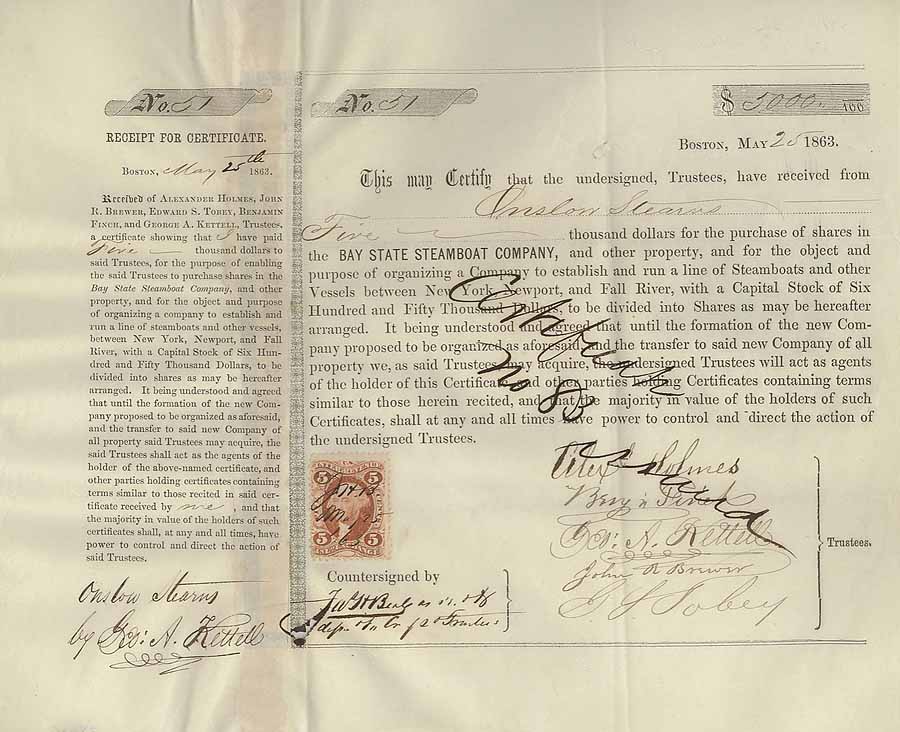 No. 51
RECEIPT FOR CERTIFICATE.
BOSTON, May 25th 1863.
Received of ALEXANDER HOLMES, JOHN
R. BREWER, EDWARD S. TOBEY, BENJAMIN
FINCH, and GEORGE A. KETTELL, Trustees,
a certificate showing that I have paid
Five thousand dollars to
said Trustees, for the purpose of enabling
the said Trustees to purchase shares in the
Bay State Steamboat Company, and other
property, and for the object and purpose
of organizing a company to establish and
run a line of steamboats and other vessels,
between New York, Newport, and Fall
River, with a Capital Stock of Six Hun-
dred and Fifty Thousand Dollars, to be
divided into shares as may be hereafter
arranged. It being understood and agreed
that until the formation of the new Com-
pany proposed to be organized as aforesaid,
and the transfer to said new Company of
all property said Trustees may acquire, the
said Trustees shall act as the agents of the
holder of the above-named certificate, and
other parties holding certificates containing
terms similar to those recited in said cer-
tificate received by me, and that
the majority in value of the holders of such
certificates shall, at any and all times, have
power to control and direct the action of
said Trustees.
Onslow Stearns
by Geo: A. Kettell
No. 51
$ 5000. 100
BOSTON, MAY 25 1863.
This may Certify that the undersigned, Trustees, have received from
Onslow Stearns
Five thousand dollars for the purchase of shares in
the BAY STATE STEAMBOAT COMPANY, and other property, and for the object and
purpose of organizing a Company to establish and run a line of Steamboats and other
Vessels between New York, Newport, and Fall River, with a Capital Stock of Six
Hundred and Fifty Thousand Dollars, to be divided into Shares as may be hereafter
arranged. It being understood and agreed that until the formation of the new Com-
pany proposed to be organized as aforesaid, and the transfer to said new Company of all
property we, as said Trustees may acquire, the undersigned Trustees will act as agents
of the holder of this Certificate, and other parties holding Certificates containing terms
similar to those herein recited, and that the majority in value of the holders of such
Certificates, shall at any and all times have power to control and direct the action of
the undersigned Trustees.
No 83
U.S.
INTER. REV.
5 5
5 5
Alex. Holmes
Benj n Finch
Geo: A. Kettell
John R Brewer
E. S. Tobey
Trustees.
Countersigned by